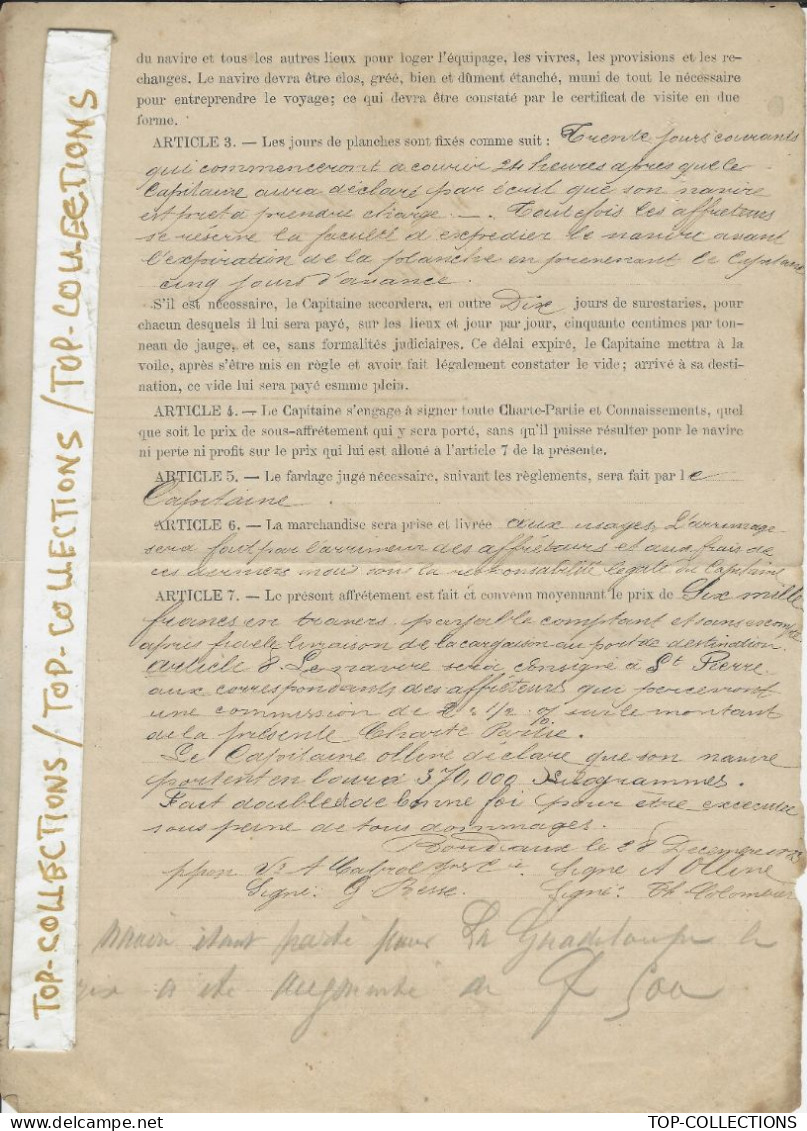 du navire et tous les autres lieux pour loger l'équipage, les vivres, les provisions et les re-
changes. Le navire devra être clos, gréé, bien et dûment étanché, muni de tout le nécessaire
pour entreprendre le voyage; ce qui devra être constaté par le certificat de visite en due
forme.
ARTICLE 3. — Les jours de planches sont fixés comme suit : Trente jours courants
qui commenceront à courir 24 heures après que le
Capitaine aura déclaré par écrit que son navire
est prêt à prendre charge. — Toutefois les affréteurs
se réserve la faculté d'expédier le navire avant
l'expiration de la planche en prevenant le Capitaine
cinq jours d'avance.
S'il est nécessaire, le Capitaine accordera, en outre Dix jours de surestaries, pour
chacun desquels il lui sera payé, sur les lieux et jour par jour, cinquante centimes par ton-
neau de jauge, et ce, sans formalités judiciaires. Ce délai expiré, le Capitaine mettra à la
voile, après s'être mis en règle et avoir fait légalement constater le vide; arrivé à sa desti-
nation, ce vide lui sera payé esmme plein.
ARTICLE 4. — Le Capitaine s'engage à signer toute Charte-Partie et Connaissements, quel
que soit le prix de sous-affrétement qui y sera porté, sans qu'il puisse résulter pour le navire
ni perte ni profit sur le prix qui lui est alloué à l'article 7 de la présente.
ARTICLE 5. — Le fardage jugé nécessaire, suivant les règlements, sera fait par le
Capitaine.
ARTICLE 6. — La marchandise sera prise et livrée aux usages. L'arrimage
sera fait par l'arrimeur des affréteurs et aux frais de
ces derniers mais sous la responsabilité légale du Capitaine
ARTICLE 7. — Le présent affrétement est fait et convenu moyennant le prix de Six mille
francs en travers payable comptant et sans escompte
après fidèle livraison de la cargaison au port de destination.
Article 8. Le navire sera consigné à St Pierre
aux correspondants des affréteurs qui percevront
une commission de 2 1/2 % sur le montant
de la présente Charte Partie.
Le Capitaine Ollive déclare que son navire
portent en lourd 370,000 Kilogrammes.
Fait double de bonne foi pour être exécutée
sous peine de tous dommages.
Bordeaux le 28 Décembre
ppon Ve A Cabrol Signé A Ollive
Signé: G Besse. Signé: Th. Colombier
navire étant parti pour La Guadeloupe le
prix a été augmenté de F 500
TOP-COLLECTIONS / TOP-COLLECTIONS / TOP-COLLECTIONS / TOP-COLLECTIONS
TOP-COLLECTIONS